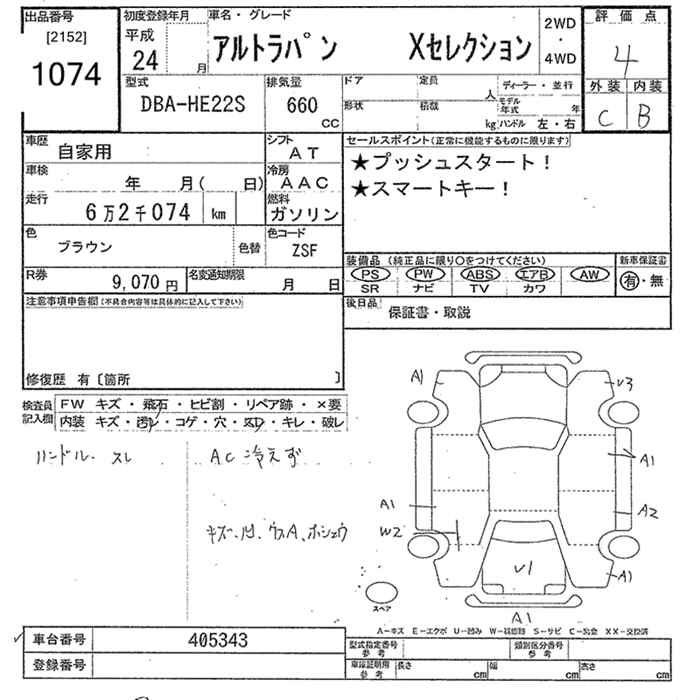 出品番号
[2152]
1074
初度登録年月
平成
24 月
車名・グレード
アルトラパン Xセレクション
2WD
・
4WD
評価点
4
外装 内装
C B
型式
DBA-HE22S
排気量
660
CC
ドア 定員
人
形状 積載
kg
ディーラー・並行
モデル年式 年
ハンドル 左・右
車歴
自家用
シフト
AT
車検
年 月( 日)
冷房
AAC
走行
6万2千074 km
燃料
ガソリン
色
ブラウン
色替
色コード
ZSF
R券
9,070円
名変通知期限
月 日
セールスポイント(正常に機能するものに限ります)
★プッシュスタート!
★スマートキー!
装備品 (純正品に限り○をつけてください)
PS PW ABS エアB AW
SR ナビ TV カワ
新車保証書
有・無
後日品
保証書・取説
注意事項申告欄(不具合内容等は具体的に記入して下さい)
修復歴 有〔箇所 〕
検査員記入欄
FW キズ・飛石・ヒビ割・リペア跡・×要
内装 キズ・汚レ・コゲ・穴・スレ・キレ・破レ
ハンドル・スレ
AC冷えず
キズ・凹、ウスA、ホシュウ
A1
V3
A1
A1
A2
W2
V1
A1
A1
スペア
A-キズ E-エクボ U-凹み W-補修跡 S-サビ C-腐食 XX-交換済
車台番号
405343
登録番号
型式指定番号
参考
類別区分番号
参考
車庫証明用
参考
長さ cm
幅 cm
高さ cm